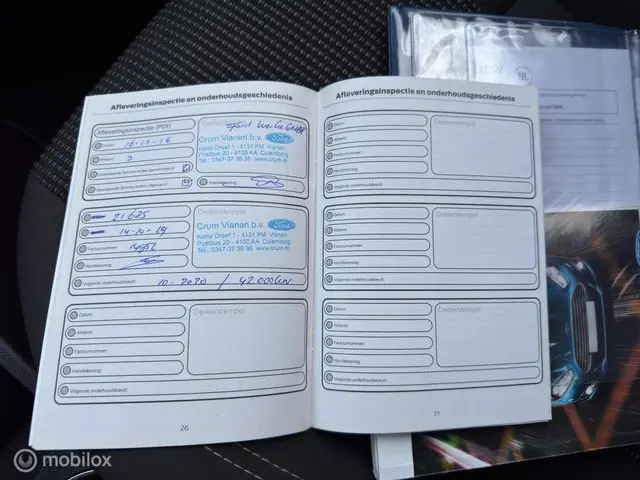 Afleveringsinspectie en onderhoudsgeschiedenis
Afleveringsinspectie (PDI)
Datum:
Afstand:
Handtekening:
Dealerstempel
Crum Vianen b.v.
Ford
Korte Dreef 1 - 4131 PM Vianen
Postbus 20 - 4100 AA Culemborg
Tel.: 0347-37 36 36 www.crum.nl
21625
14-10-19
Factuurnummer:
Handtekening:
Volgende onderhoudsbeurt: 10-2020 / 42.000km
Dealerstempel
Crum Vianen b.v.
Ford
Korte Dreef 1 - 4131 PM Vianen
Postbus 20 - 4100 AA Culemborg
Tel.: 0347-37 36 36 www.crum.nl
Datum:
Afstand:
Factuurnummer:
Handtekening:
Volgende onderhoudsbeurt:
Dealerstempel
26
Afleveringsinspectie en onderhoudsgeschiedenis
Datum:
Afstand:
Factuurnummer:
Handtekening:
Volgende onderhoudsbeurt:
Dealerstempel
Datum:
Afstand:
Factuurnummer:
Handtekening:
Volgende onderhoudsbeurt:
Dealerstempel
Datum:
Afstand:
Factuurnummer:
Handtekening:
Volgende onderhoudsbeurt:
Dealerstempel
27
NL
mobilox